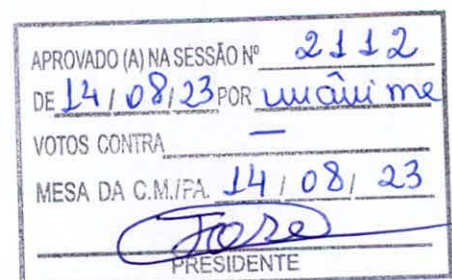 APROVADO (A) NA SESSÃO Nº 2112
DE 14 / 08 / 23 POR unânime
VOTOS CONTRA —
MESA DA C.M./PA. 14 / 08 / 23
PRESIDENTE